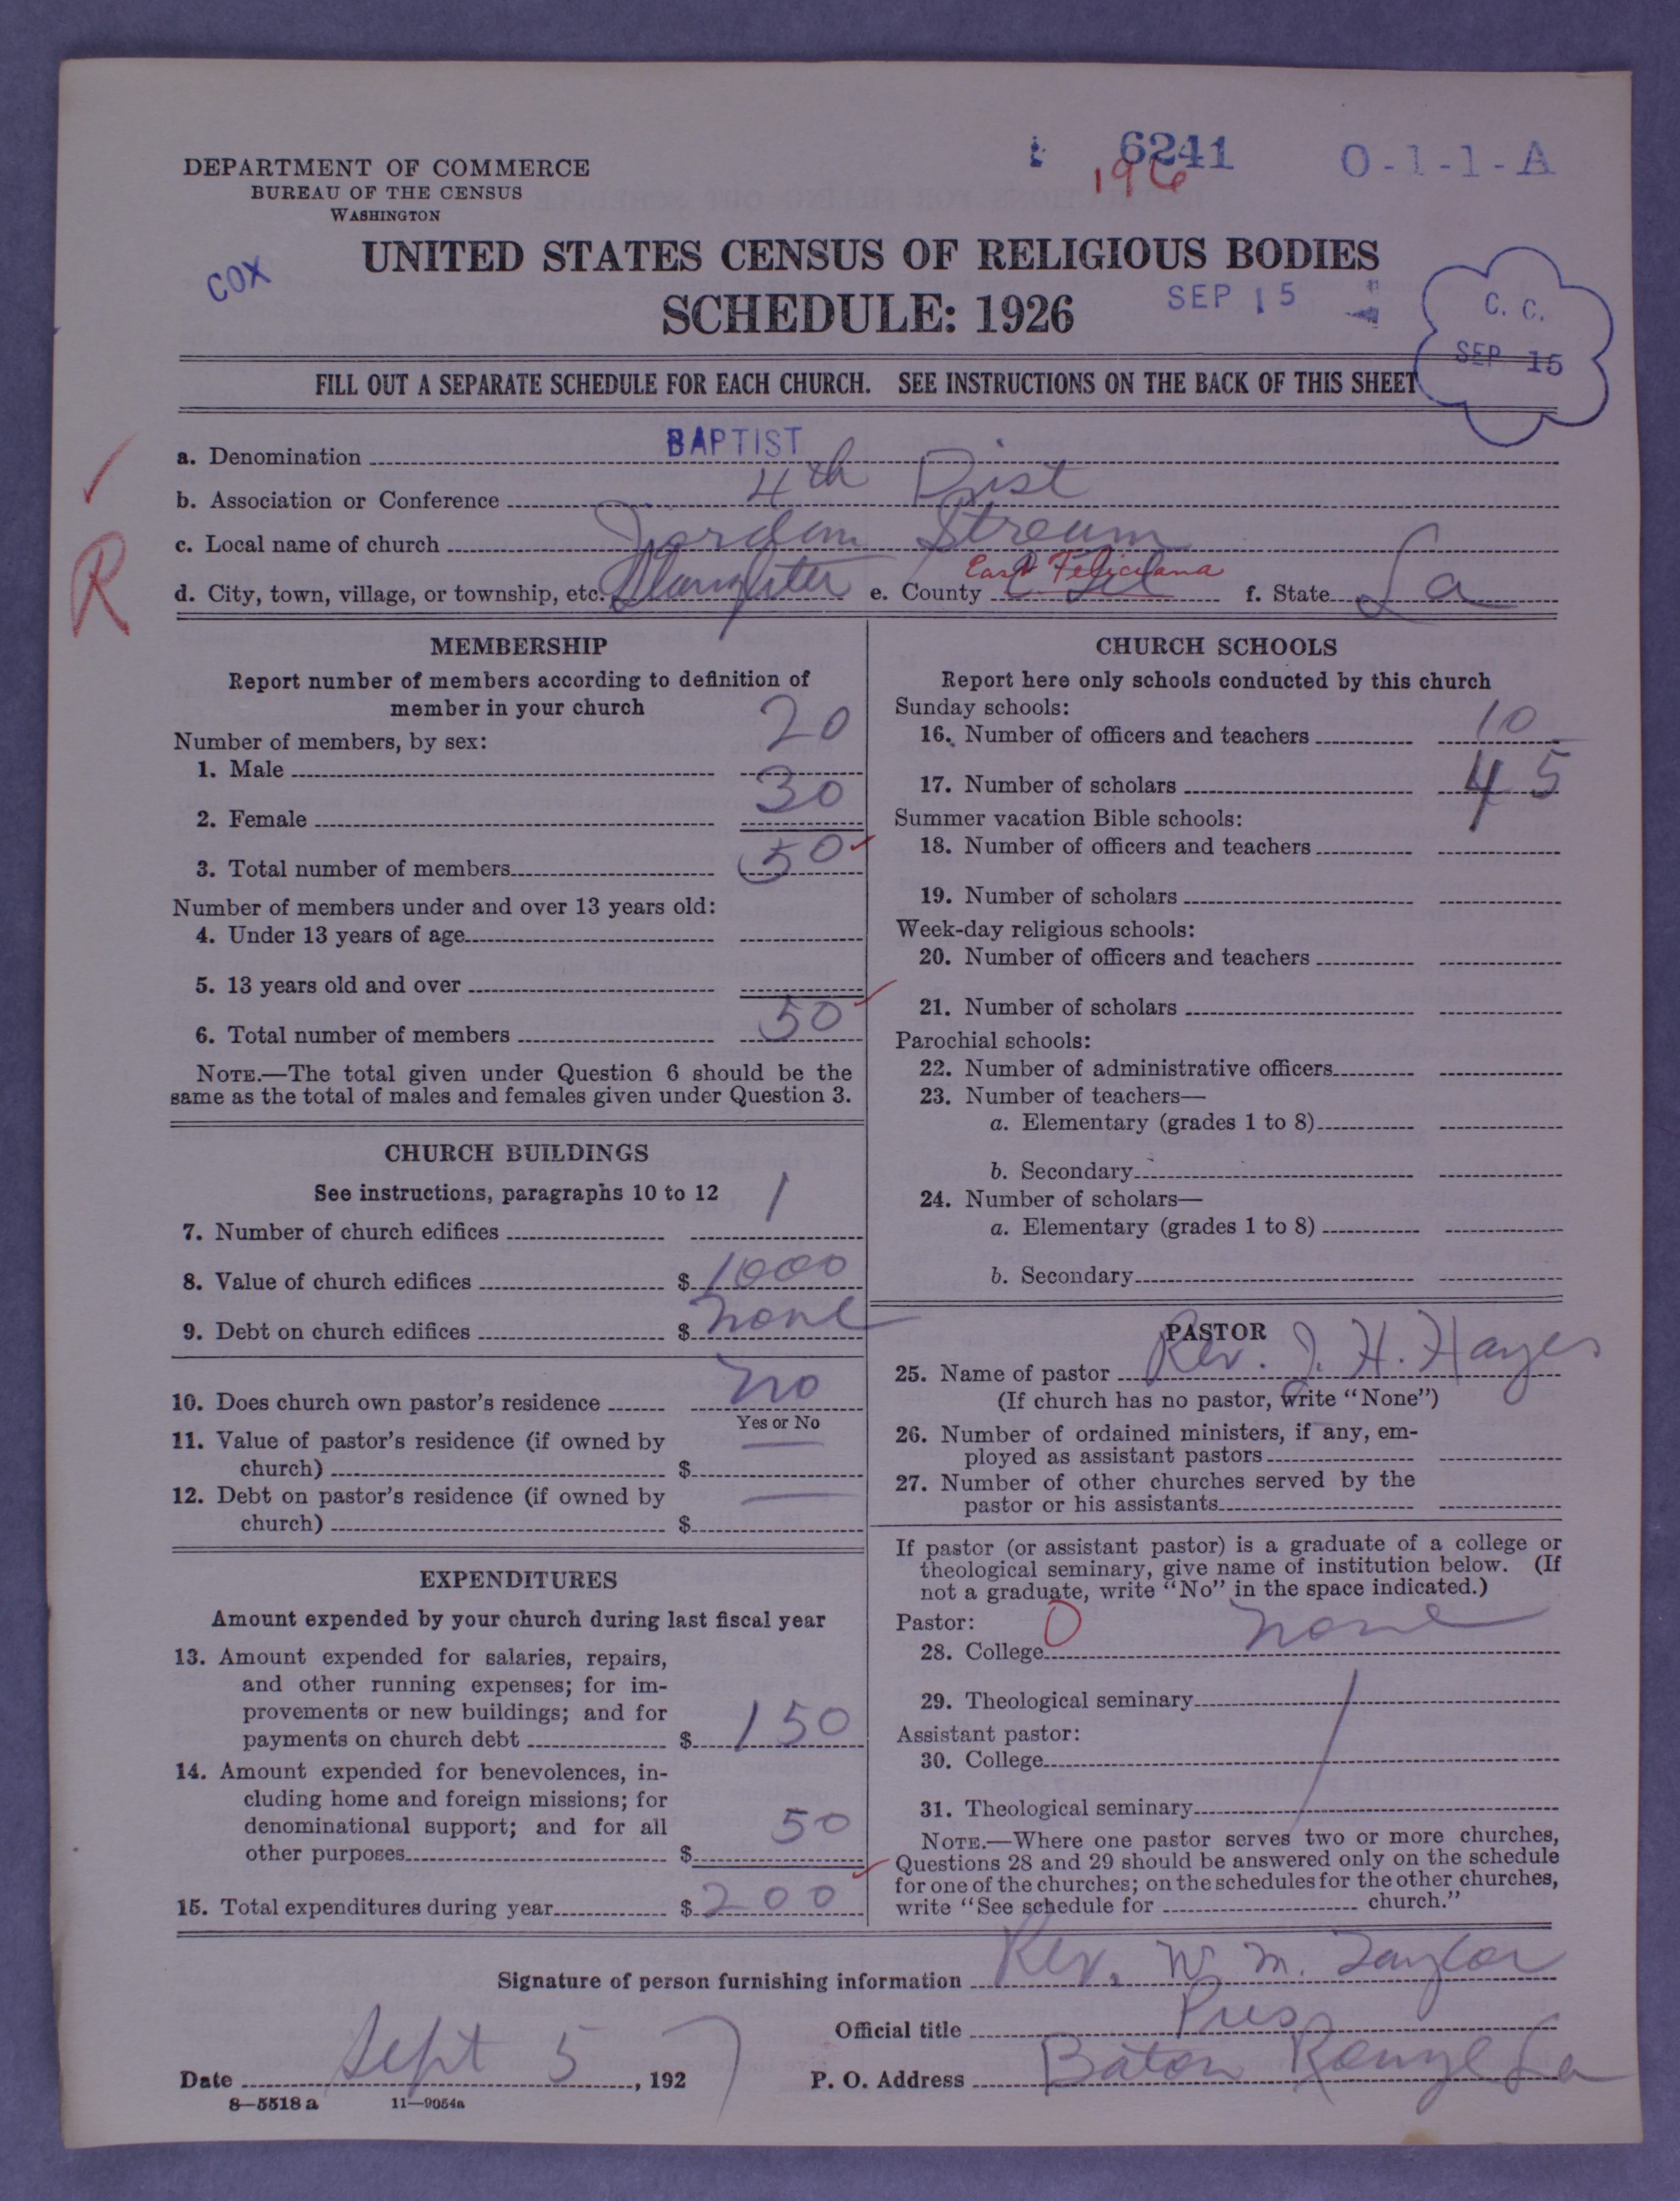 6241 O-1-1-A
196
DEPARTMENT OF COMMERCE
BUREAU OF THE CENSUS
WASHINGTON
COX
UNITED STATES CENSUS OF RELIGIOUS BODIES
SCHEDULE: 1926
SEP 15
C. C.
SEP 15
FILL OUT A SEPARATE SCHEDULE FOR EACH CHURCH. SEE INSTRUCTIONS ON THE BACK OF THIS SHEET
R
a. Denomination BAPTIST
b. Association or Conference 4th Dist
c. Local name of church Jordan Stream
d. City, town, village, or township, etc. Slaughter e. County East Feliciana f. State La
MEMBERSHIP
Report number of members according to definition of
member in your church
Number of members, by sex:
1. Male 20
2. Female 30
3. Total number of members 50
Number of members under and over 13 years old:
4. Under 13 years of age
5. 13 years old and over
6. Total number of members 50
NOTE.—The total given under Question 6 should be the
same as the total of males and females given under Question 3.
CHURCH BUILDINGS
See instructions, paragraphs 10 to 12
7. Number of church edifices 1
8. Value of church edifices $ 1000
9. Debt on church edifices $ none
10. Does church own pastor's residence no
Yes or No
11. Value of pastor's residence (if owned by
church) $ —
12. Debt on pastor's residence (if owned by
church) $ —
EXPENDITURES
Amount expended by your church during last fiscal year
13. Amount expended for salaries, repairs,
and other running expenses; for im-
provements or new buildings; and for
payments on church debt $ 150
14. Amount expended for benevolences, in-
cluding home and foreign missions; for
denominational support; and for all
other purposes $ 50
15. Total expenditures during year $ 200
CHURCH SCHOOLS
Report here only schools conducted by this church
Sunday schools:
16. Number of officers and teachers 10
17. Number of scholars 45
Summer vacation Bible schools:
18. Number of officers and teachers
19. Number of scholars
Week-day religious schools:
20. Number of officers and teachers
21. Number of scholars
Parochial schools:
22. Number of administrative officers
23. Number of teachers—
a. Elementary (grades 1 to 8)
b. Secondary
24. Number of scholars—
a. Elementary (grades 1 to 8)
b. Secondary
PASTOR
25. Name of pastor Rev. J. H. Hayes
(If church has no pastor, write "None")
26. Number of ordained ministers, if any, em-
ployed as assistant pastors
27. Number of other churches served by the
pastor or his assistants
If pastor (or assistant pastor) is a graduate of a college or
theological seminary, give name of institution below. (If
not a graduate, write "No" in the space indicated.)
Pastor: 0
28. College none
29. Theological seminary
Assistant pastor:
30. College
31. Theological seminary
NOTE.—Where one pastor serves two or more churches,
Questions 28 and 29 should be answered only on the schedule
for one of the churches; on the schedules for the other churches,
write "See schedule for church."
Signature of person furnishing information Rev. W. M. Taylor
Official title Pres
Date Sept 5, 1927 P. O. Address Baton Rouge La
8—5518 a 11—9054a